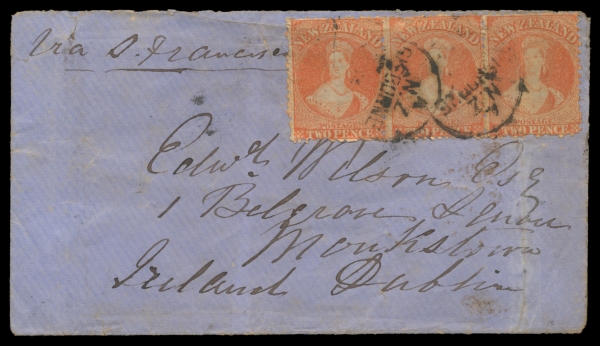 Via S. Francisco
NEW ZEALAND
POSTAGE
TWO PENCE
NEW ZEALAND
POSTAGE
TWO PENCE
NEW ZEALAND
POSTAGE
TWO PENCE
NZ
NZ
Edwd Wilson Esq
1 Belgrave Square
Monkstown
Ireland Dublin